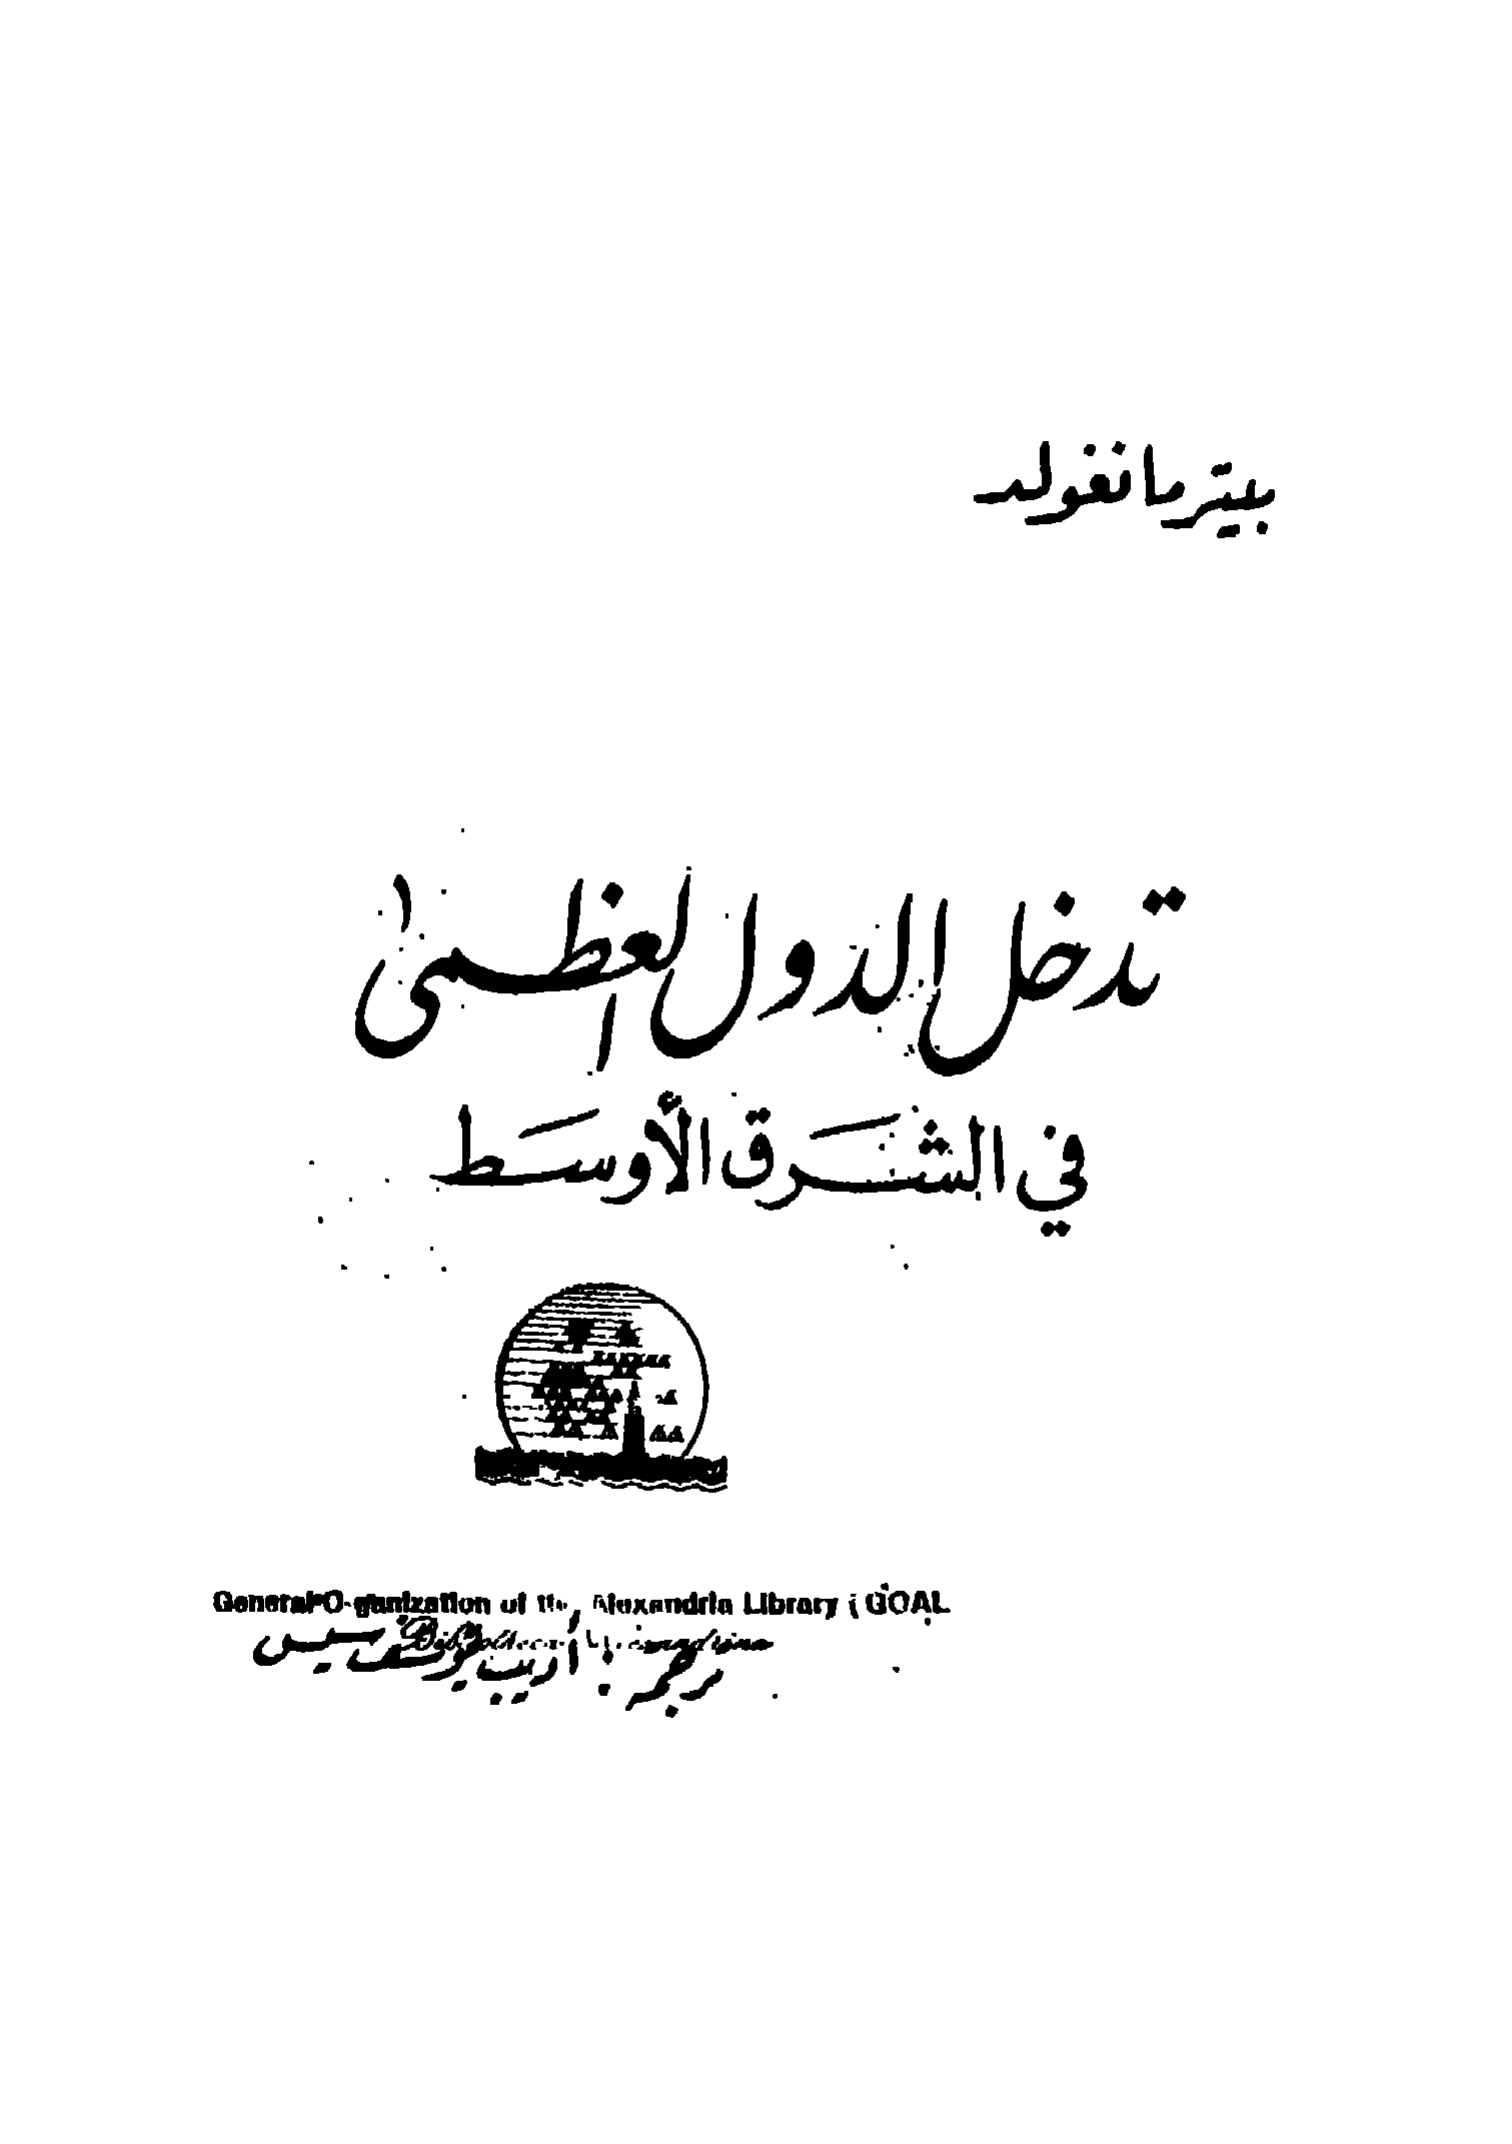 بيتر مانغولد
تدخل الدول العظمى
في الشرق الأوسط
General Organization of the Alexandria Library (GOAL
Bibliotheca Alexandrina
ترجمة : أديب يوسف شيش